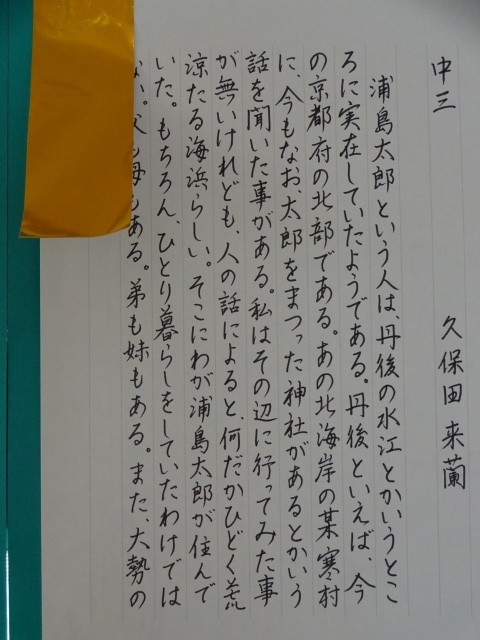 中三　久保田来蘭
浦島太郎という人は、丹後の水江とかいうとこ
ろに実在していたようである。丹後といえば、今
の京都府の北部である。あの北海岸の某寒村
に、今もなお、太郎をまつった神社があるとかいう
話を聞いた事がある。私はその辺に行ってみた事
が無いけれども、人の話によると、何だかひどく荒
涼たる海浜らしい。そこにわが浦島太郎が住んで
いた。もちろん、ひとり暮らしをしていたわけでは
ない。父も母もある。弟も妹もある。また、大勢の